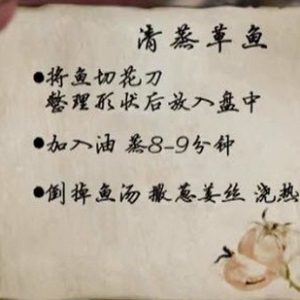 清蒸草鱼
●将鱼切花刀
整理形状后放入盘中
●加入油 蒸8-9分钟
●倒掉鱼汤 撒葱姜丝 浇热